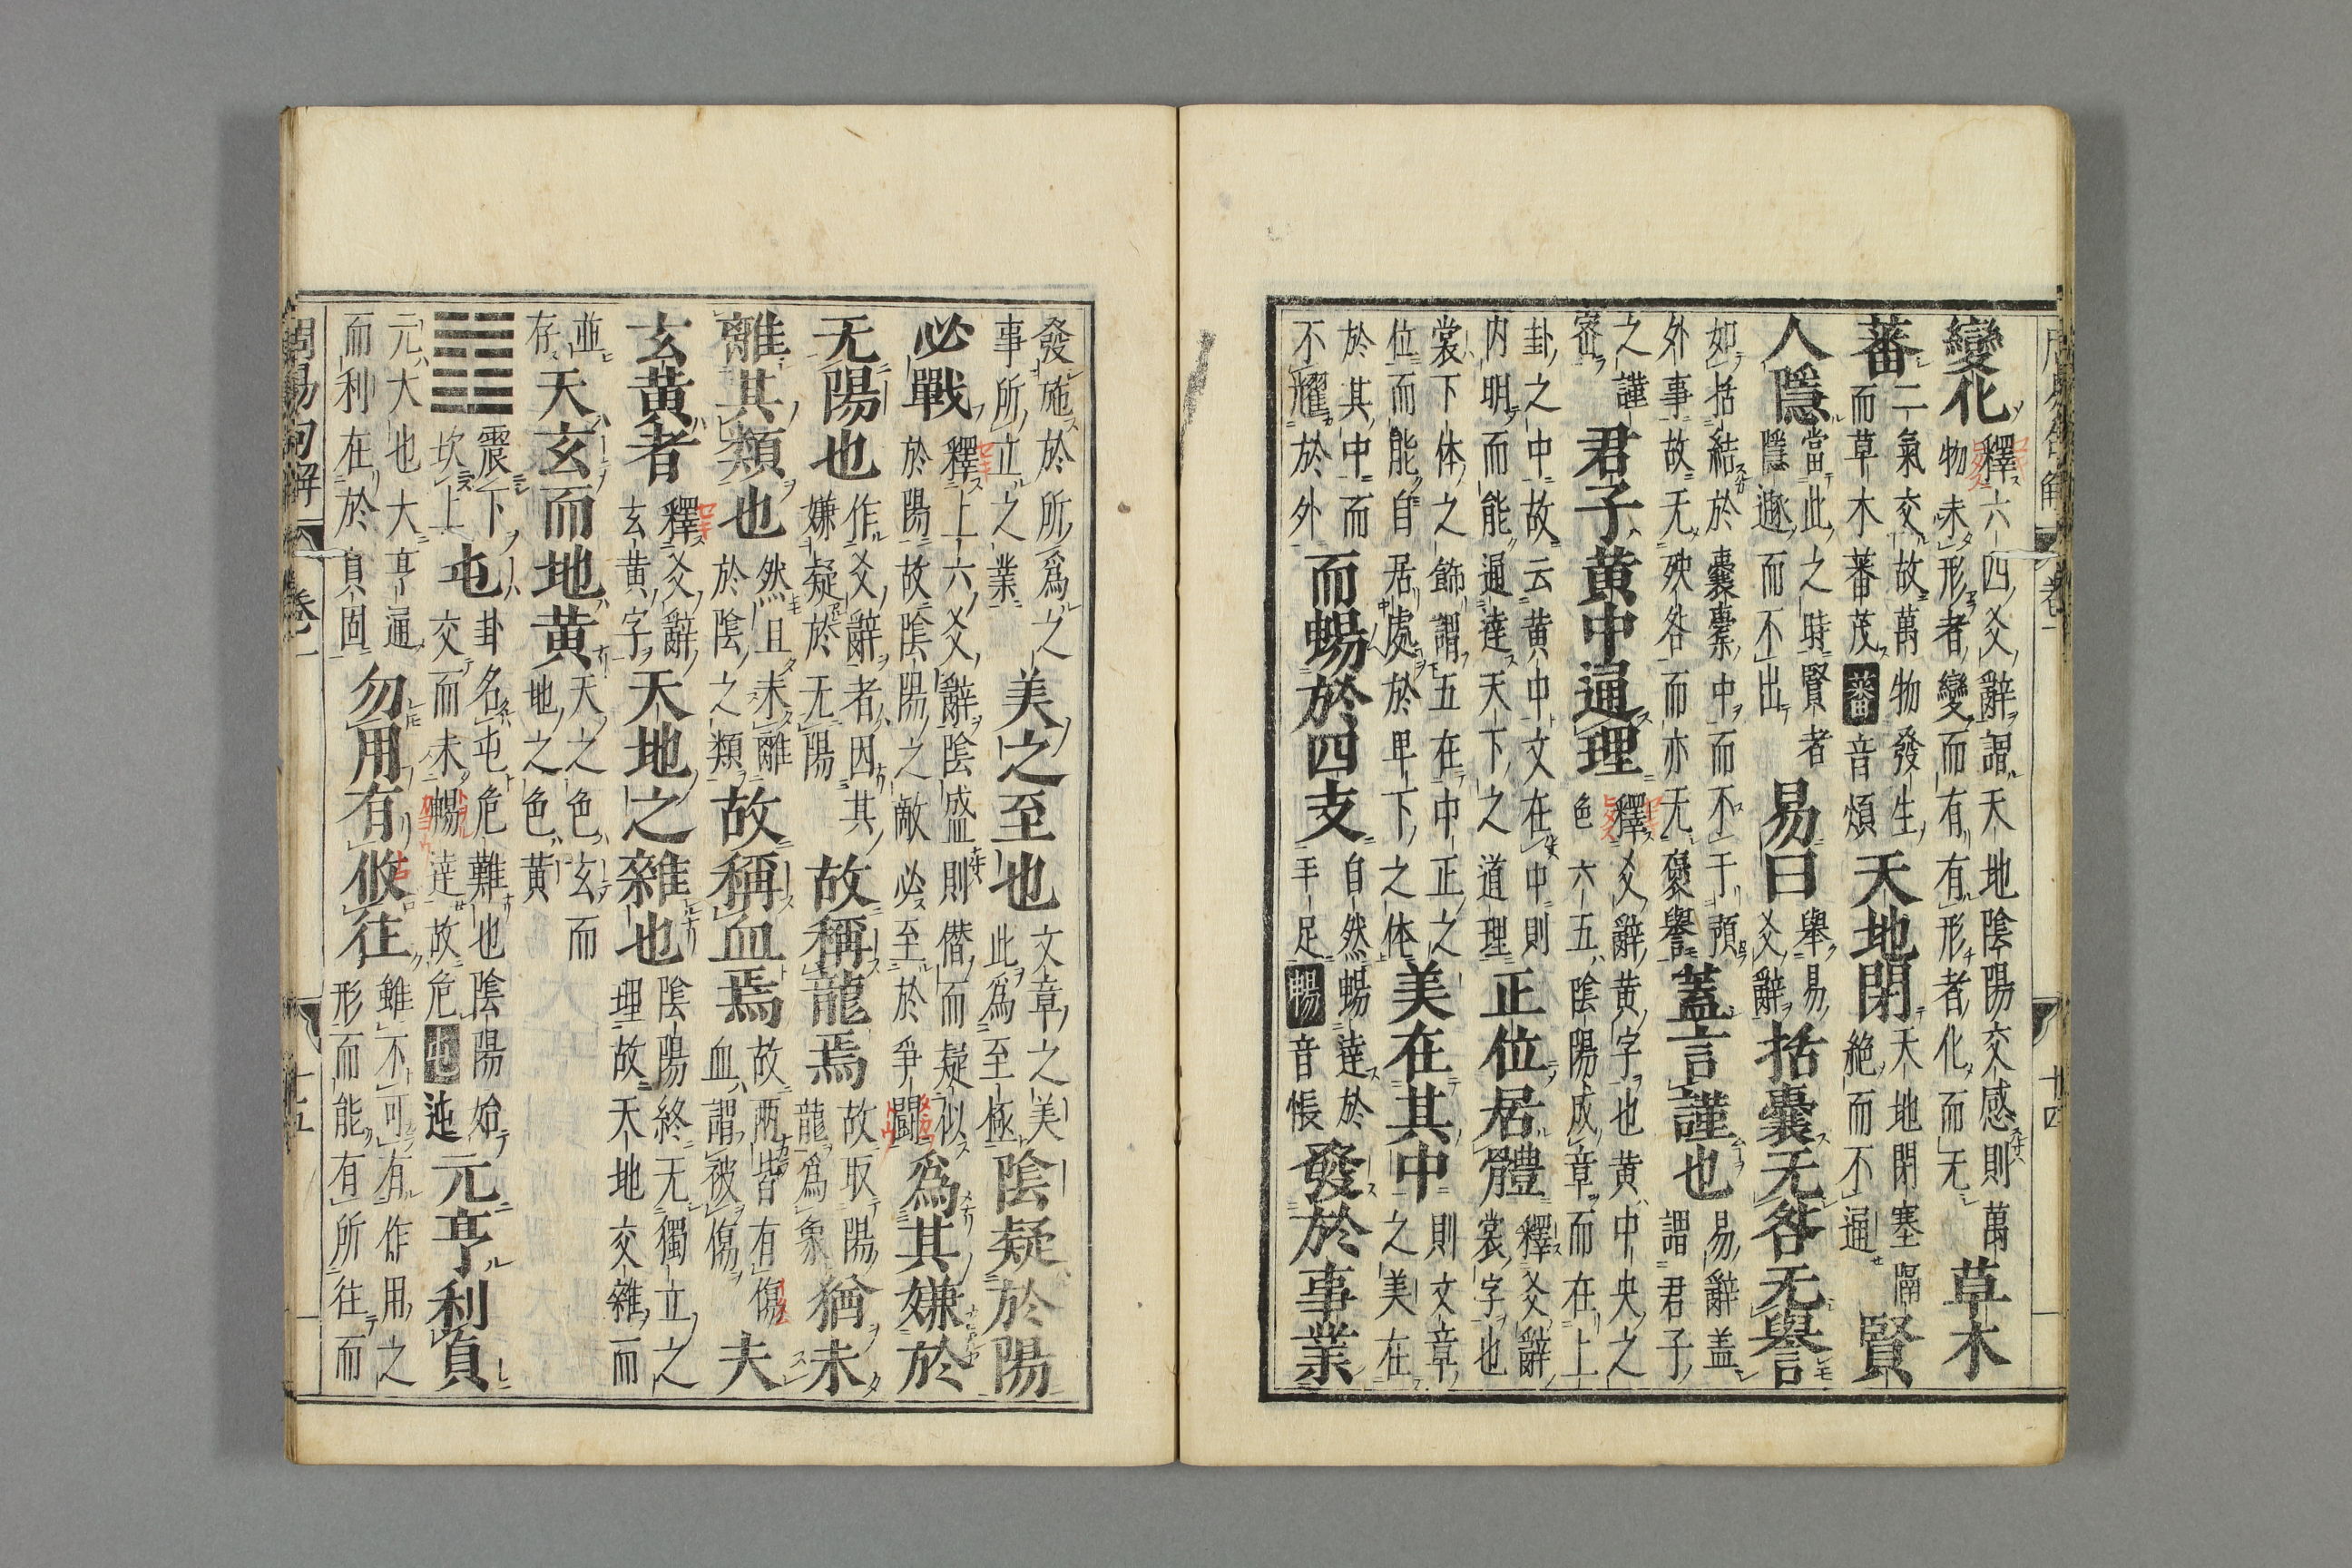 周易句解 卷一 十四
變化釋六四爻辭謂天地陰陽交感則萬物未形者變而有有形者化而无草木
蕃二氣交故萬物發生而草木蕃茂蕃音煩天地閉天地閉塞隔絶而不通賢
人隱當此之時賢者隱遯而不出易曰舉易爻辭括囊无咎无譽
如括結於囊橐中而不于預外事故无殃咎而亦无褒譽蓋言謹也易辭盖謂君子
之謹密君子黄中通理釋爻辭黄字也黄中央之色六五陰陽成章而在上
卦之中故云黄中文在中則内明而能通達天下之道理正位居體釋爻辭裳字也
裳下体之飾謂五在中正之位而能自居處於卑下之体美在其中則文章之美在
於其中而不耀於外而暢於四支自然暢達於手足暢音悵發於事業
發施於所爲之事所立之業美之至也文章之美此爲至極陰疑於陽
必戰釋上六爻辭陰盛則僭而疑似於陽故陰陽之敵必至於爭鬬爲其嫌於
无陽也作爻辭者因其嫌疑於无陽故稱龍焉故取陽龍爲象猶未
離其類也然且未離於陰之類故稱血焉故兩皆有傷血謂被傷夫
玄黄者釋爻辭玄黄字天地之雜也陰陽終无獨立之理故天地交雜而
並存天玄而地黄天之色玄而地之色黄
䷂震下坎上屯卦名屯危難也陰陽始交而未暢達故危屯迍元亨利貞
元大也大亨通而利在於貞固勿用有攸往雖不可有作用之形而能有所往而
周易句解 卷一 十五